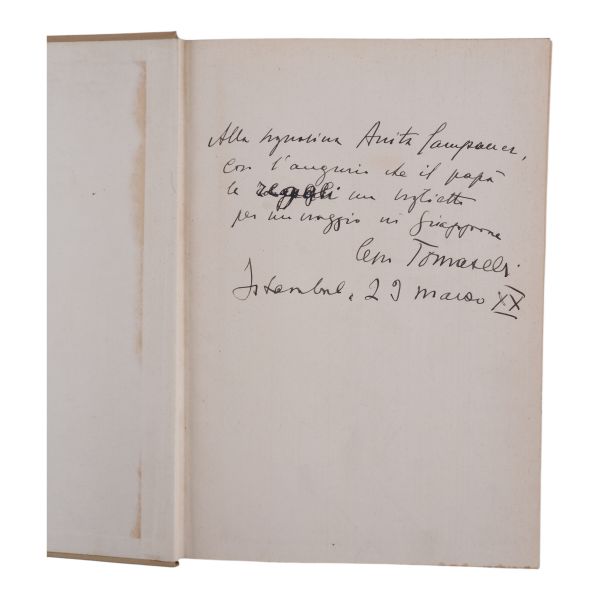 Alla signorina Anita
con l'augurio che il papà
le regali un biglietto
per un viaggio in Giappone
Cesco Tomaselli
Istanbul, 29 marzo XX